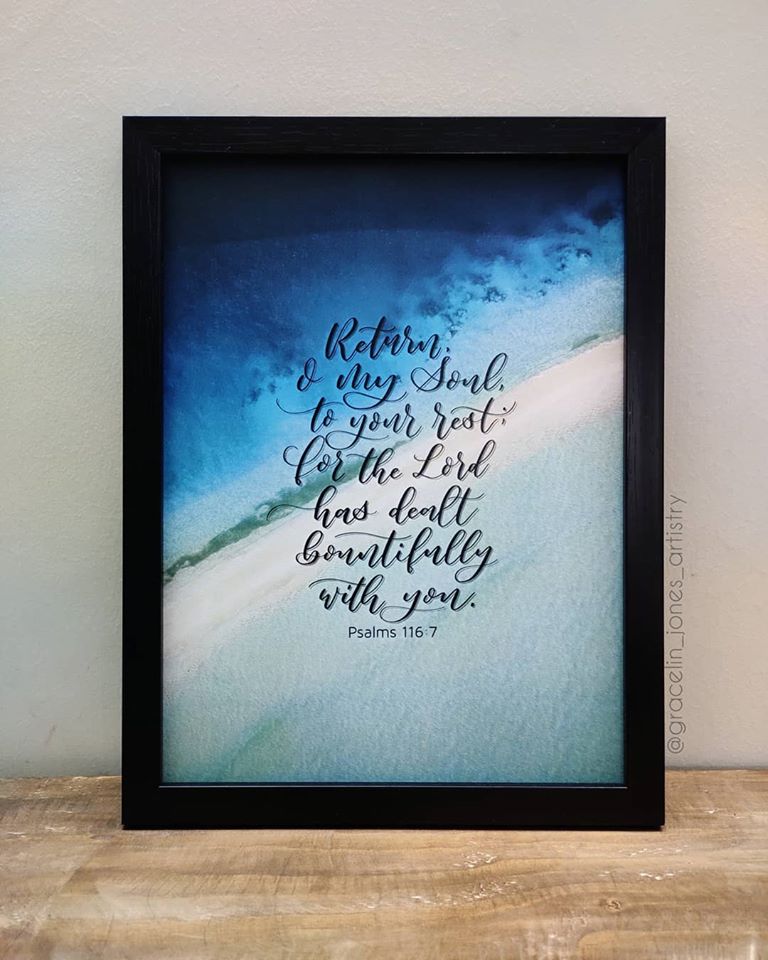 Return,
O my Soul,
to your rest;
for the Lord
has dealt
bountifully
with you.
Psalms 116:7
@gracelin_jones_artistry